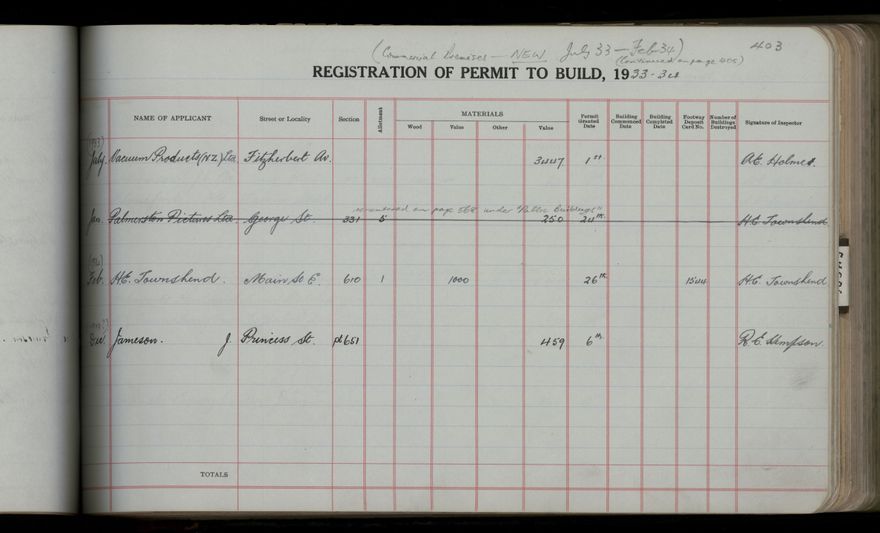 403
(Commercial Premises — NEW July 33 — Feb 34)
(Continued on page 405)
REGISTRATION OF PERMIT TO BUILD, 1933-34
NAME OF APPLICANT Street or Locality Section Allotment MATERIALS Permit Granted Date Building Commenced Date Building Completed Date Footway Deposit Card No. Number of Buildings Destroyed Signature of Inspector
Wood Value Other Value
(1933)
July Vacuum Products (N.Z.) Ltd. Fitzherbert Av. 3447 1st. A.E. Holmes.
re-entered on page 568 under "Public Buildings"
Jan. Palmerston Pictures Ltd. George St. 331 5 250 24th. H.E. Townshend
Feb. H.E. Townshend. Main St E. 610 1 1000 26th. 1544 H.E. Townshend
Jameson. J. Princess St. pt 651 459 6th.
TOTALS